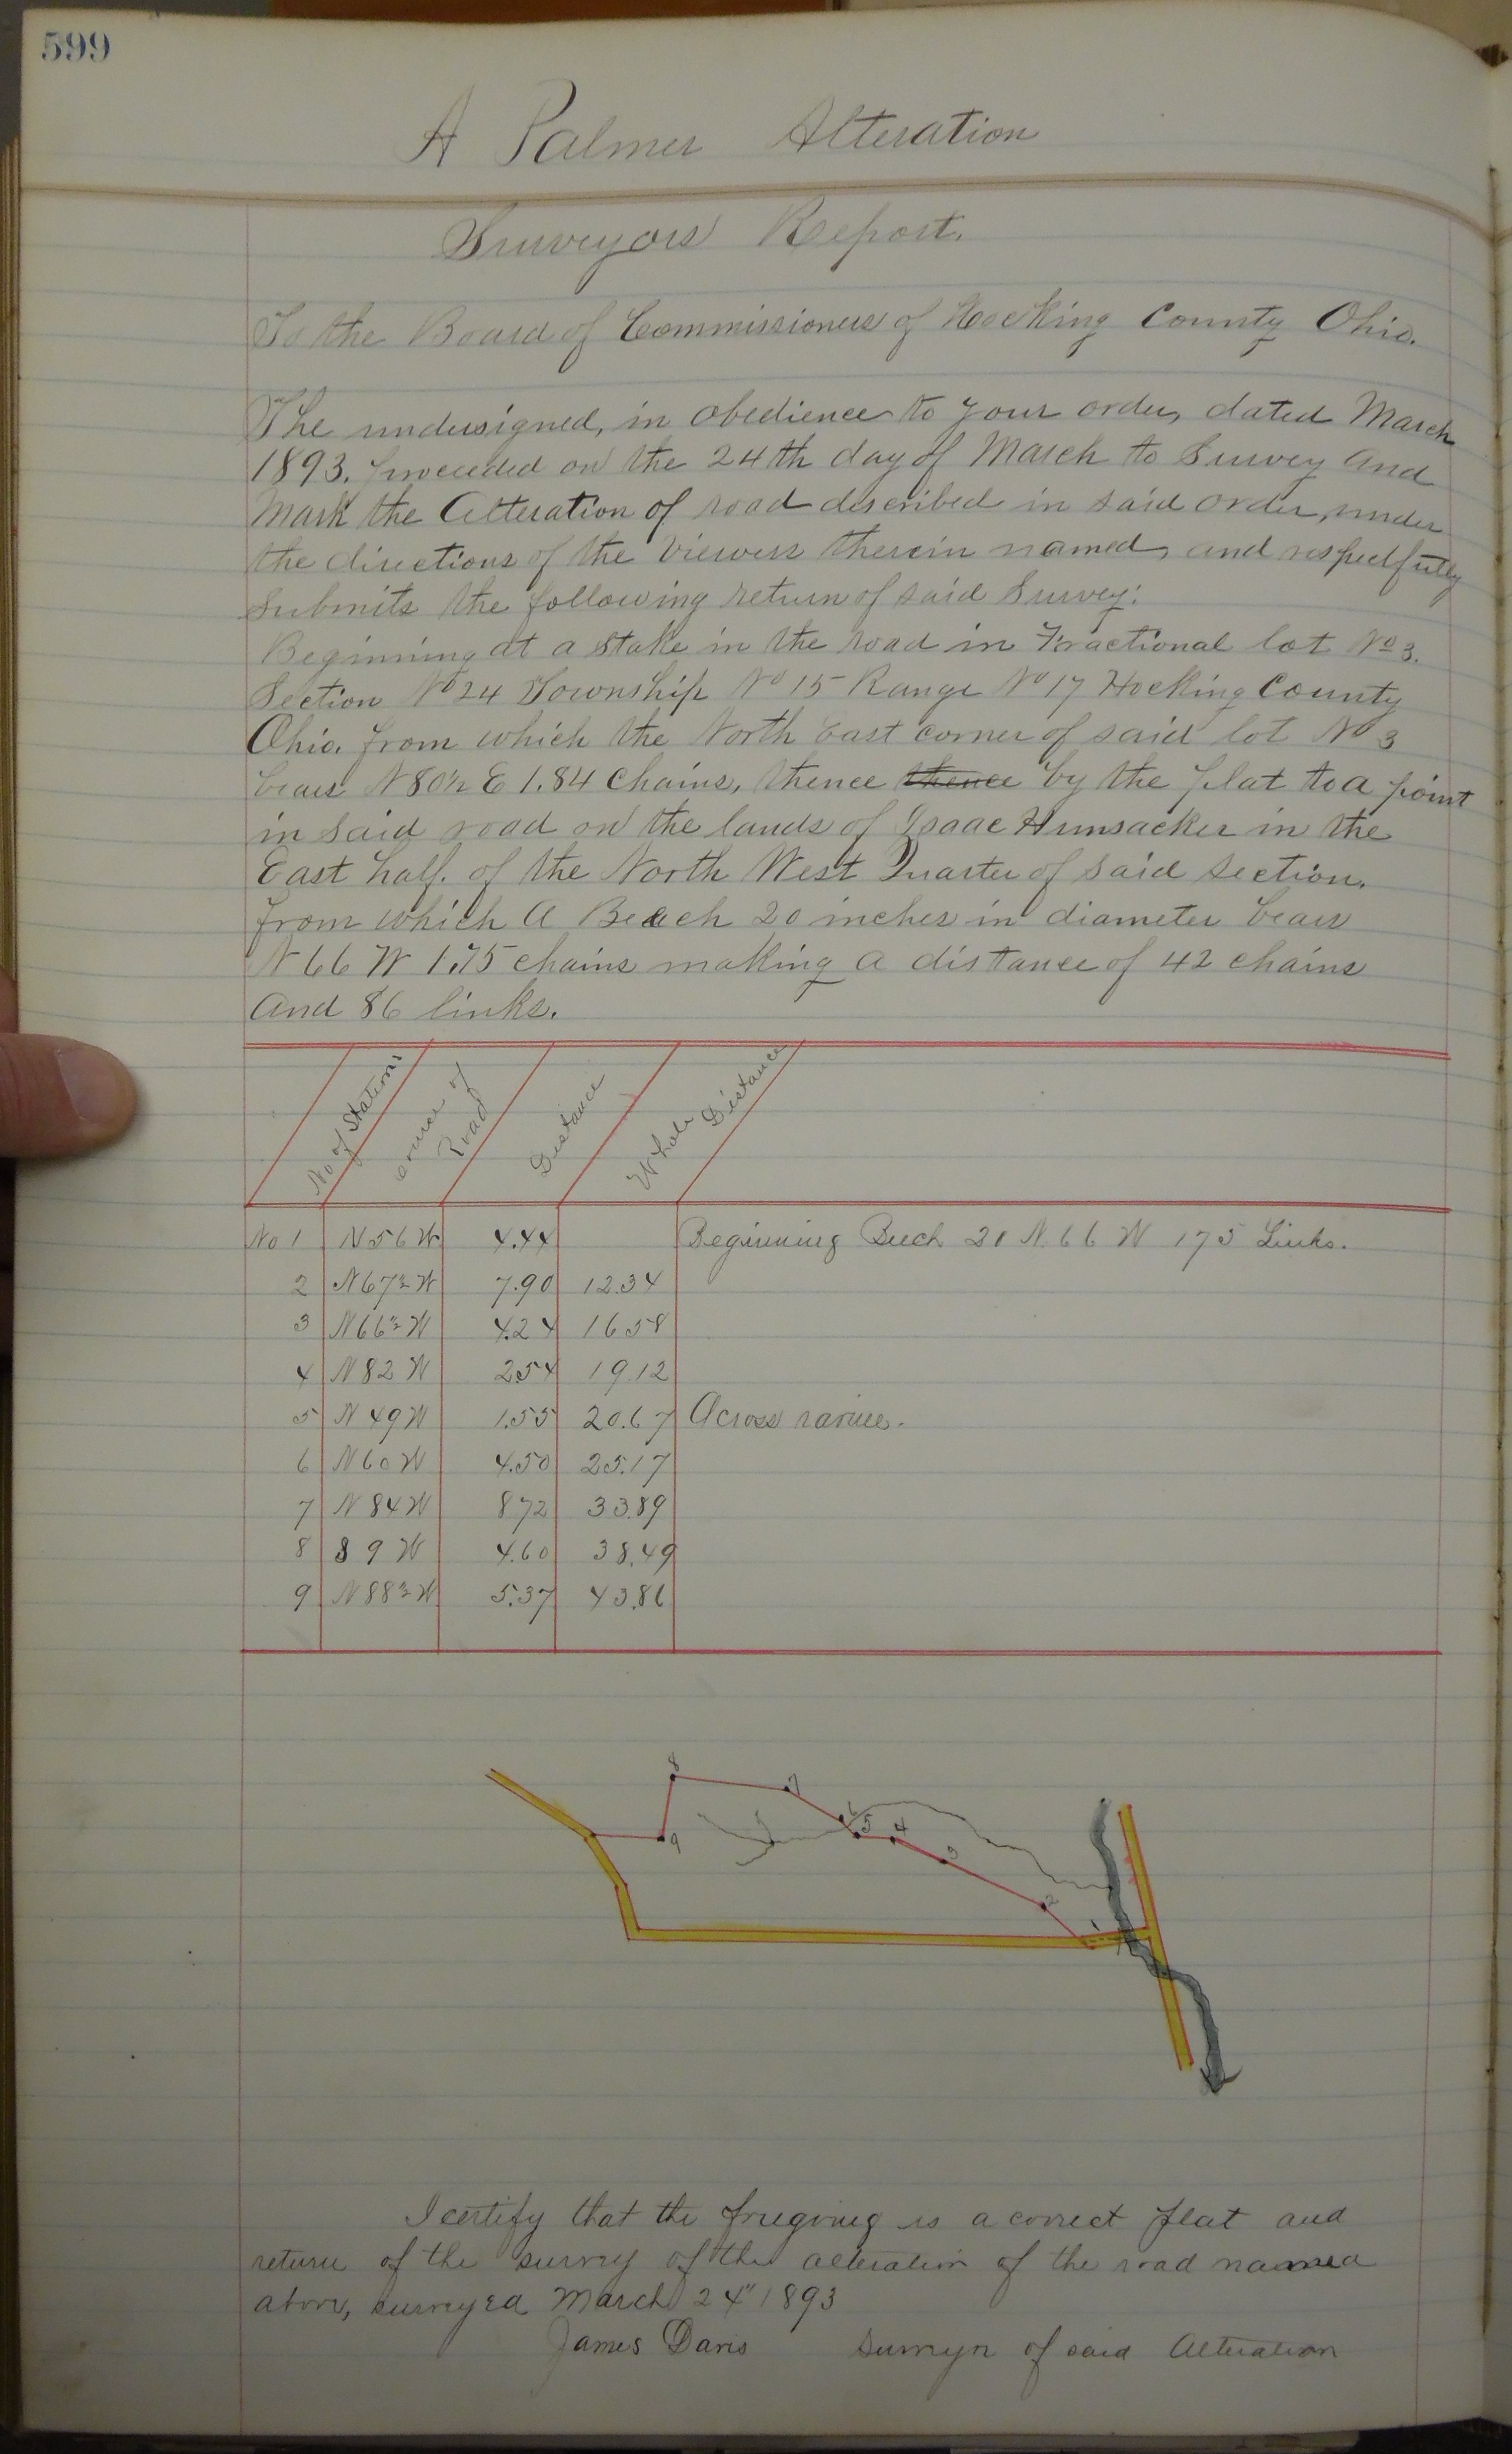 599
A Palmer Alteration
Surveyors Report.
To the Board of Commissioners of Hocking County Ohio.
The undersigned, in obedience to your order, dated March
1893. proceeded on the 24th day of March to Survey and
Mark the Alteration of road described in said order, under
the directions of the Viewers therein named, and respectfully
Submits the following return of said Survey:
Beginning at a stake in the road in Fractional lot No 3.
Section No 24 Township No 15 Range No 17 Hocking County
Ohio. from which the North East corner of said lot No 3
bears N 80½ E 1.84 Chains, thence thence by the plat to a point
in said road on the lands of Isaac Hunsacker in the
East half. of the North West Quarter of said section.
from which A Beach 20 inches in diameter bears
N 66 W 1.75 chains making a distance of 42 chains
and 86 links.
No of Stations
Course of Road
Distance
Whole Distance
No 1 N 56 W 4.44 Beginning Beech 20 N. 66 W 175 Links.
2 N 67½ W 7.90 12.34
3 N 66½ W 4.24 16 58
4 N 82 W 254 19.12
5 N 49 W 1.55 20.67 Across ravine.
6 N 60 W 4.50 25.17
7 N 84 W 872 33.89
8 S 9 W 4.60 38.49
9 N 88½ W 5.37 43.86
8
7
6
5
4
9
3
2
1
I certify that the foregoing is a correct plat and
return of the survey of the alteration of the road named
above, surveyed March 24" 1893
James Davis Surveyr of said Alteration